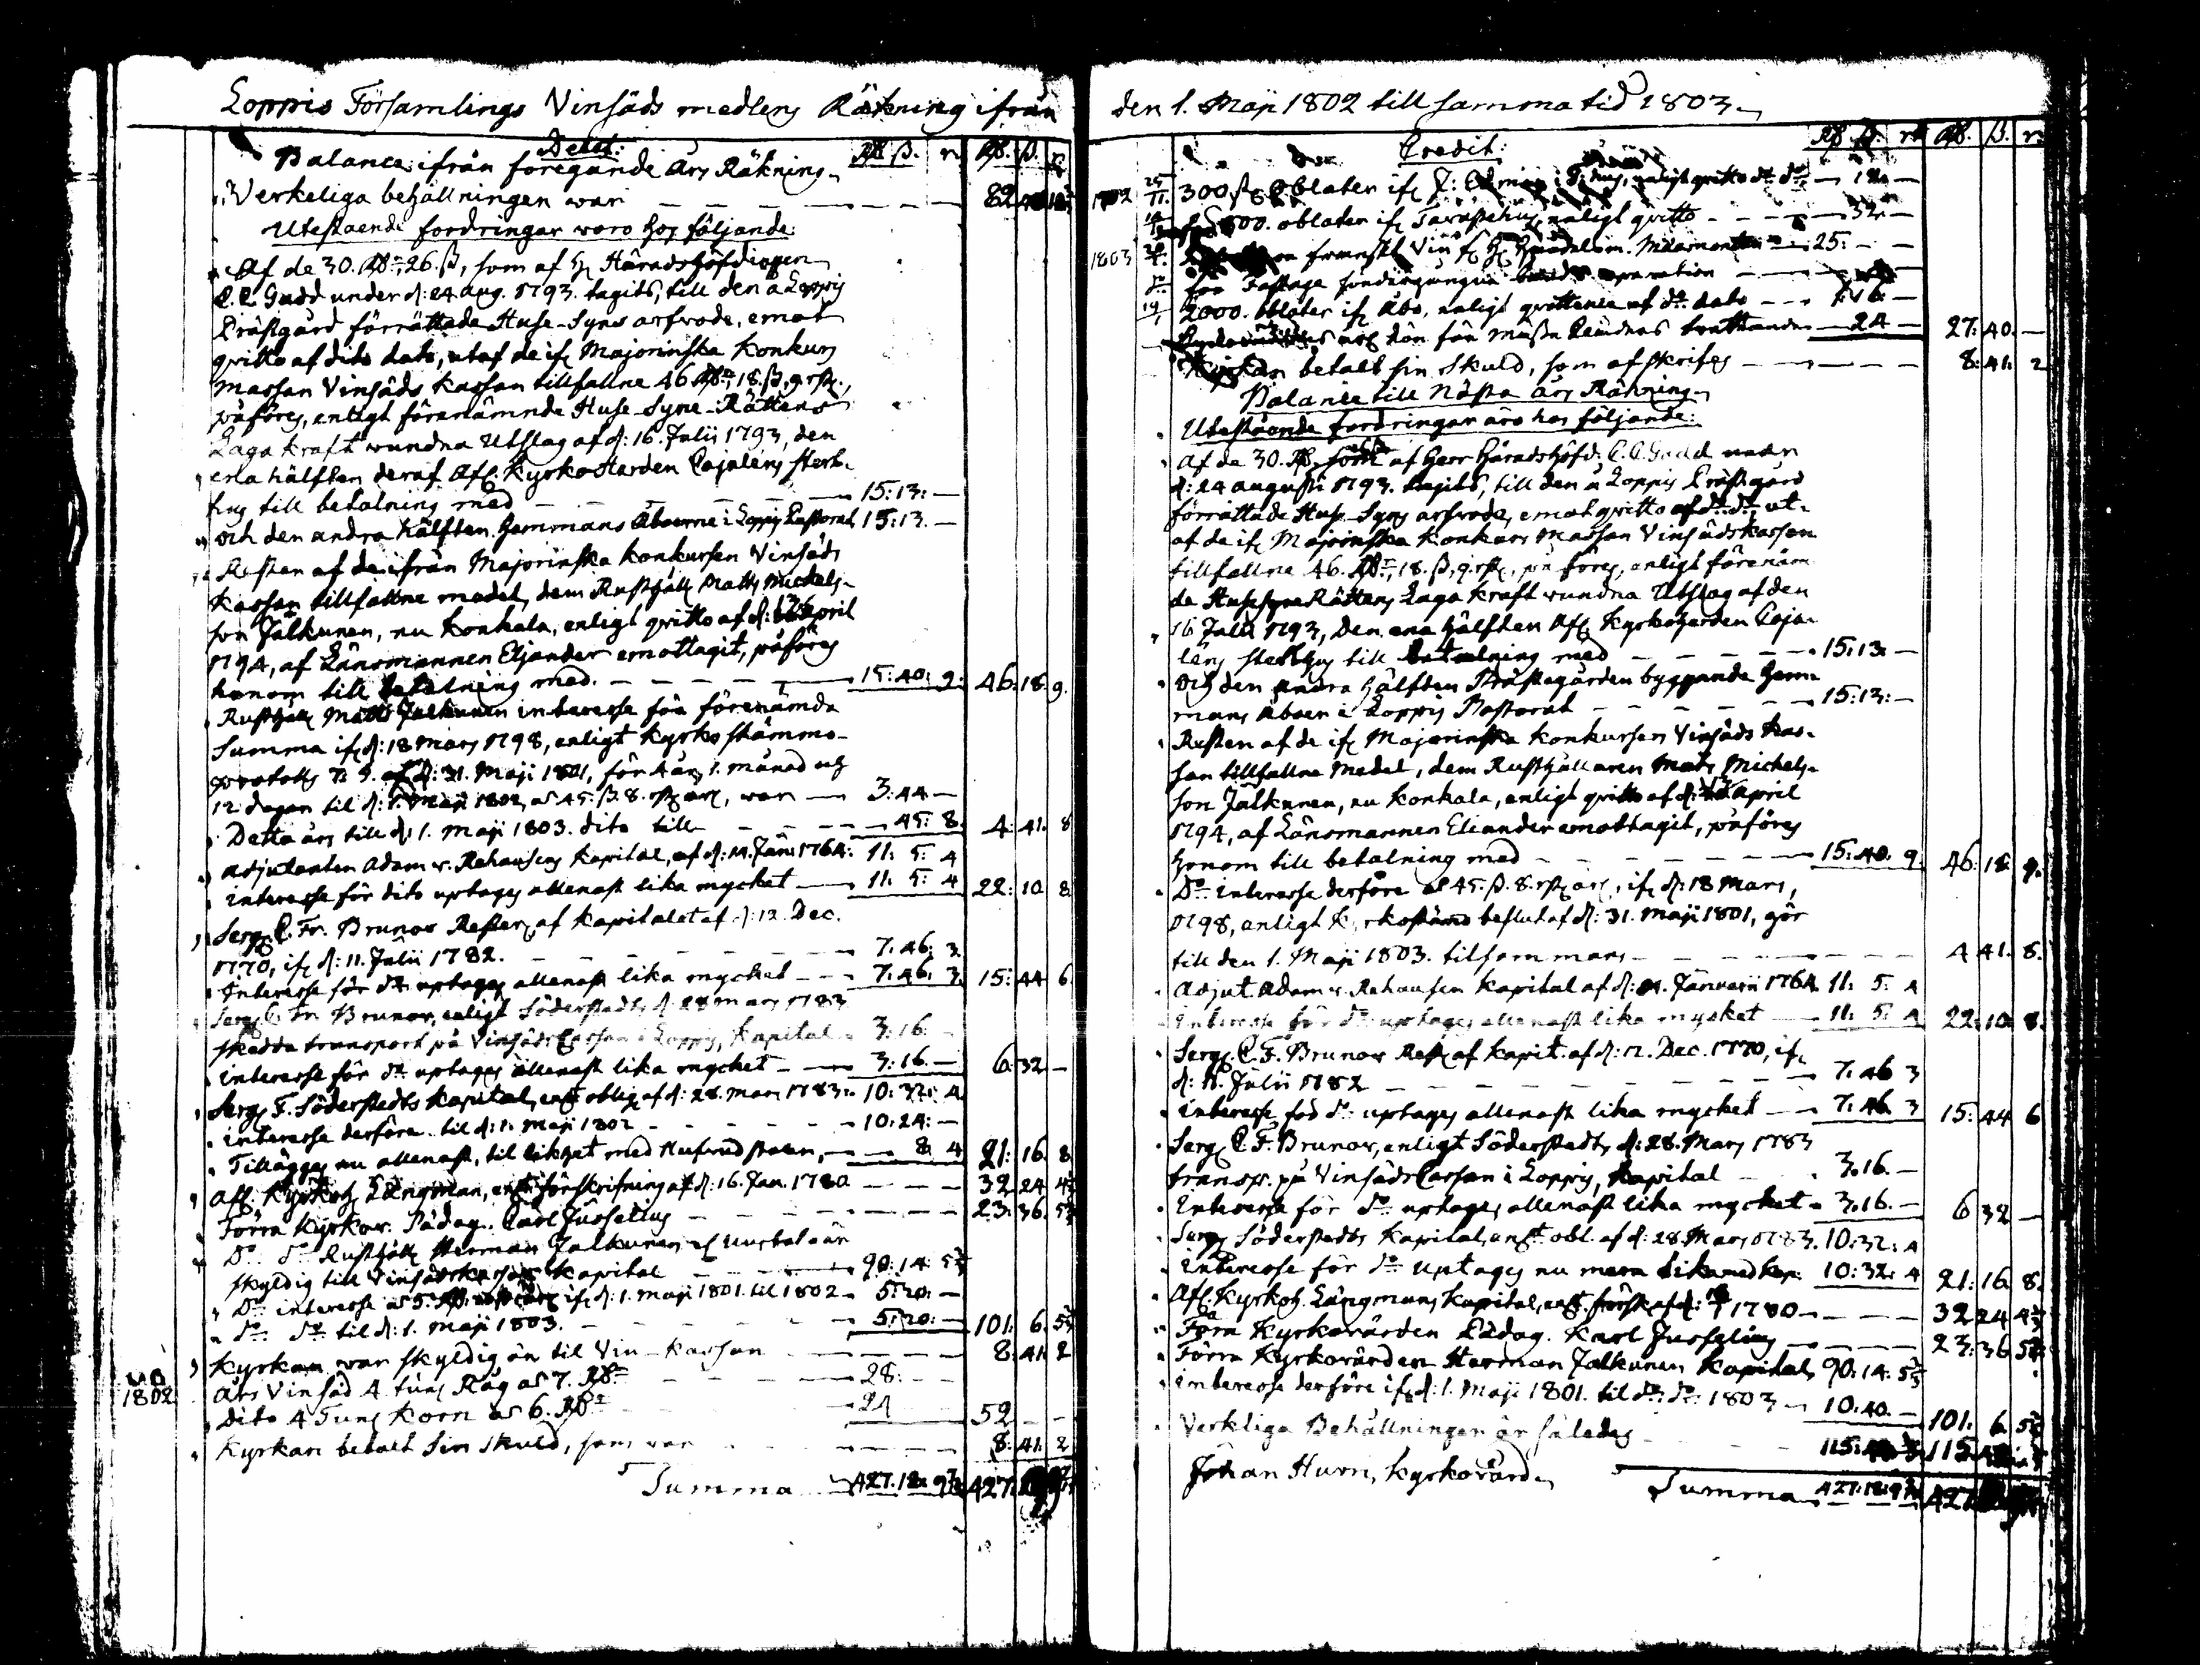 Loppis Församlings Vinsäds medlens Räkning ifrån
Debet:
Rd. ß. r. Rd. ß. r.
Balance ifrån föregående års Räkning
Verkeliga behållningen war — — — 82
Utestaende fordringar woro hos följande:
Af de 30. Rdr, 26. ß, som af H Häradshöfdingen
C. C. Gadd under d: 24 aug. 1793. tagits, till den å Loppis
Prästgård förrättade Huse-Syns arfvode, emot
qvitto af dito dato, utaf de ifr Majorinska Konkurs
Massan Vinsäds kassan tillfallne 46 Rdr, 18. ß, 9. rst.,
påföres, enligt förenämnde Huse-Syne-Rättens
Laga kraft wundna Utslag af d: 16. Julii 1793, den
ena hälften deraf Afl. Kyrkoherden Cajaléns sterb-
hus till betalning med — — — 15: 13: —
och den andra hälften Hemmans Åboerne i Loppis Pastorat 15: 13. —
Resten af de ifrån Majorinska konkursen Vinsäds
kassan tillfallne medel, dem Rusthåll. Matts Michels-
son Jalkunen, nu Konkala, enligt qvitto af d: april
1794, af Länsmannen Eljander emottagit, påföres
honom till betalning med. — — — 15: 40: 9. 46: 18. 9.
Rusthåll. Matts Jalkunen interesse för förenämda
Summa ifr d: 18 Mars 1798, enligt Kyrkostämmo-
protocolls af d: 31. Maji 1801, för 4 år, 1. månad och
12 dagar til d: 1. Maji 1802, as 45. ß. 8. rst. arl, war — 3: 44 —
Detta års till d: 1. Maji 1803. dito till — — — 45: 8. 4: 41. 8
Adjutanten Adam v. Rehausens Kapital, af d: 14. Jän: 1764: 11. 5: 4
interesse för dito uptages allenast lika mycket — 11. 5: 4 22: 10 8
Serg. C. Fr. Brunov Rester af Kapitalet af d: 12. Dec.
1770, ifr d: 11. Julii 1782. — — — 7. 46: 3
Interesse för do uptages allenast lika mycket — 7. 46: 3. 15: 44 6
Serg. C. Fr. Brunov, enligt Söderstedts, d. 28 mars 1783
skedda transport på Vinsäds Cassan i Loppis, Kapital — 3: 16 —
interesse för do uptages allenast lika mycket — 3: 16 — 6: 32 —
Serg. F. Söderstedts Kapital, enl. oblig. af d: 28. Mars 1783: 10: 32: 4
interesse derföre til d: 1. Maji 1802 — — — 10: 24: —
Tillägges nu allenast, til likhet med Hufvudstolen, — 8. 4 21: 16. 8
Afl. Kyrkoh. Långman, enl. förskrifning af d: 16. Jan. 1780 — — — 32 24 4
Förra Kyrkov. Pädag. Carl Jusselius — — — 23: 36. 5
Do. do. Rusthåll. Herman Jalkunen af
skyldig till Vinsädskassan Kapital — — — 90. 14. 5
Do. interesse as 5. ifr d: 1. Maji 1801. til 1802 — 5: 20. —
do. do. til d: 1. Maji 1803. — — — 5: 20: — 101. 6. 5
Kyrkan war skyldig än til Vin-kassan — — — 8: 41. 2
1802. års Vinsäd 4 tuns Råg as 7. Rdr — — — 28. —
Dito 4 Tuns korn as 6. Rdr — 24 52 — —
Kyrkan betalt sin skuld, som war — — — 8. 41. 2
Summa 427. 18. 9 427.
den 1. Maji 1802 till samma tid 1803.
Credit:
Rd. ß. r Rd. ß. r
1802 25/11. 300 st. oblater ifr enligt qvitto — 12 —
500. oblater ifr Tavastehus, enligt qvitto — — — 32 —
1803 franskt Vin — 25. — —
för Fastage
2000. oblater ifr Åbo, enligt qvittence af do dato — — 16. —
— 24 — 27: 40. —
Kyrkan betalt sin skuld, som afskrifes — — — 8: 41. 2
Balance till Nästa års Räkning
Utestående fordringar äro hos följande:
Af de 30. Rd. som af Herr Häradshöfd. C. C. Gadd under
d: 24 augusti 1793. tagits, till den å Loppis Prästgård
förrättade Huse-Syns arfvode, emot qvitto af do do ut-
af de ifr Majorinska Konkurs Massan Vinsädskassan
tillfallne 46. Rdr, 18. ß, 9. rst., på föres, enligt förenäm-
de Husesyne Rättens Laga kraft wundna Utslag af den
16 Julii 1793, den ena hälften Afl. Kyrkoherden Caja-
léns sterbhus till betalning med — — — 15: 13. —
Och den andra hälften Prästegården byggande Hem-
mans Åboer i Loppis Pastorat — — — 15: 13: —
Resten af de ifr Majorinska Konkursen Vinsäds kas-
san tillfallne Medel, dem Rusthållaren Mats Michels-
son Jalkunen, nu Konkala, enligt qvitto af d: april
1794, af Länsmannen Eliander emottagit, påföres
honom till betalning med — — — 15: 40. 9. 46: 18: 9.
Do. interesse derföre as 45. ß. 8. rst. arl., ifr d: 18 Mars,
1798, enligt Kyrkostäms beslut af d: 31. Maji 1801, gör
till den 1. Maji 1803. tilsammans — — — 4 41. 8.
Adjut. Adam v. Rehausen Kapital af d: 14. Januarii 1764 11. 5: 4
Interesse för do: uptages allenast lika mycket — 11. 5: 4 22: 10: 8.
Serg. C. F. Brunov Rest. af Kapit. af d: 12. Dec. 1770, ifr
d: 11. Julii 1782 — — — 7. 46 3
interesse för do. uptages allenast lika mycket — 7. 46 3 15: 44 6
Serg. C. F. Brunov, enligt Söderstedts, d: 28. Mars 1783
transp. på Vinsäds Cassan i Loppis, Kapital — 3. 16. —
Interesse för do. uptages allenast lika mycket — 3. 16. — 6 32 —
Serg. Söderstedts Kapital, enl. obl. af d: 28. Mars 1783. 10: 32: 4
Interesse för do uptages nu lika med Kap. 10: 32: 4 21: 16 8.
Afl. Kyrkoh. Långmans Kapital, enl. förskr. af d: 1780 — — — 32 24 4
Förra Kyrkovärden Pädag. Karl Jusselius — — — 23: 36 5
Förra Kyrkovärden Herman Jalkunen Kapital 90: 14: 5
Interesse derföre ifr d: 1. Maji 1801. til do. do. 1803 — 10. 40. — 101. 6. 5
Verkliga Behållningen är således — — — 115: 115
Johan Hurn, Kyrkovärd.
Summa 427: 18: 9 427